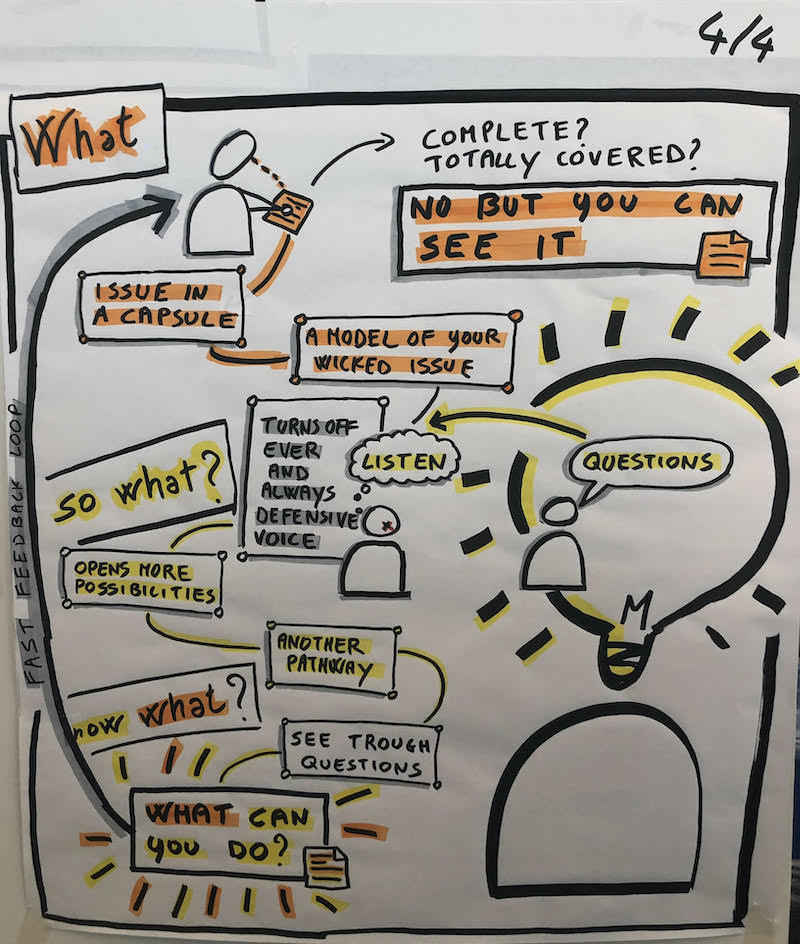 4/4
What
COMPLETE?
TOTALLY COVERED?
NO BUT YOU CAN
SEE IT
ISSUE IN
A CAPSULE
A MODEL OF YOUR
WICKED ISSUE
TURNS OFF
EVER
AND
ALWAYS
DEFENSIVE
VOICE
LISTEN
QUESTIONS
So what?
OPENS MORE
POSSIBILITIES
ANOTHER
PATHWAY
now what?
SEE TROUGH
QUESTIONS
WHAT CAN
YOU DO?
FAST FEEDBACK LOOP